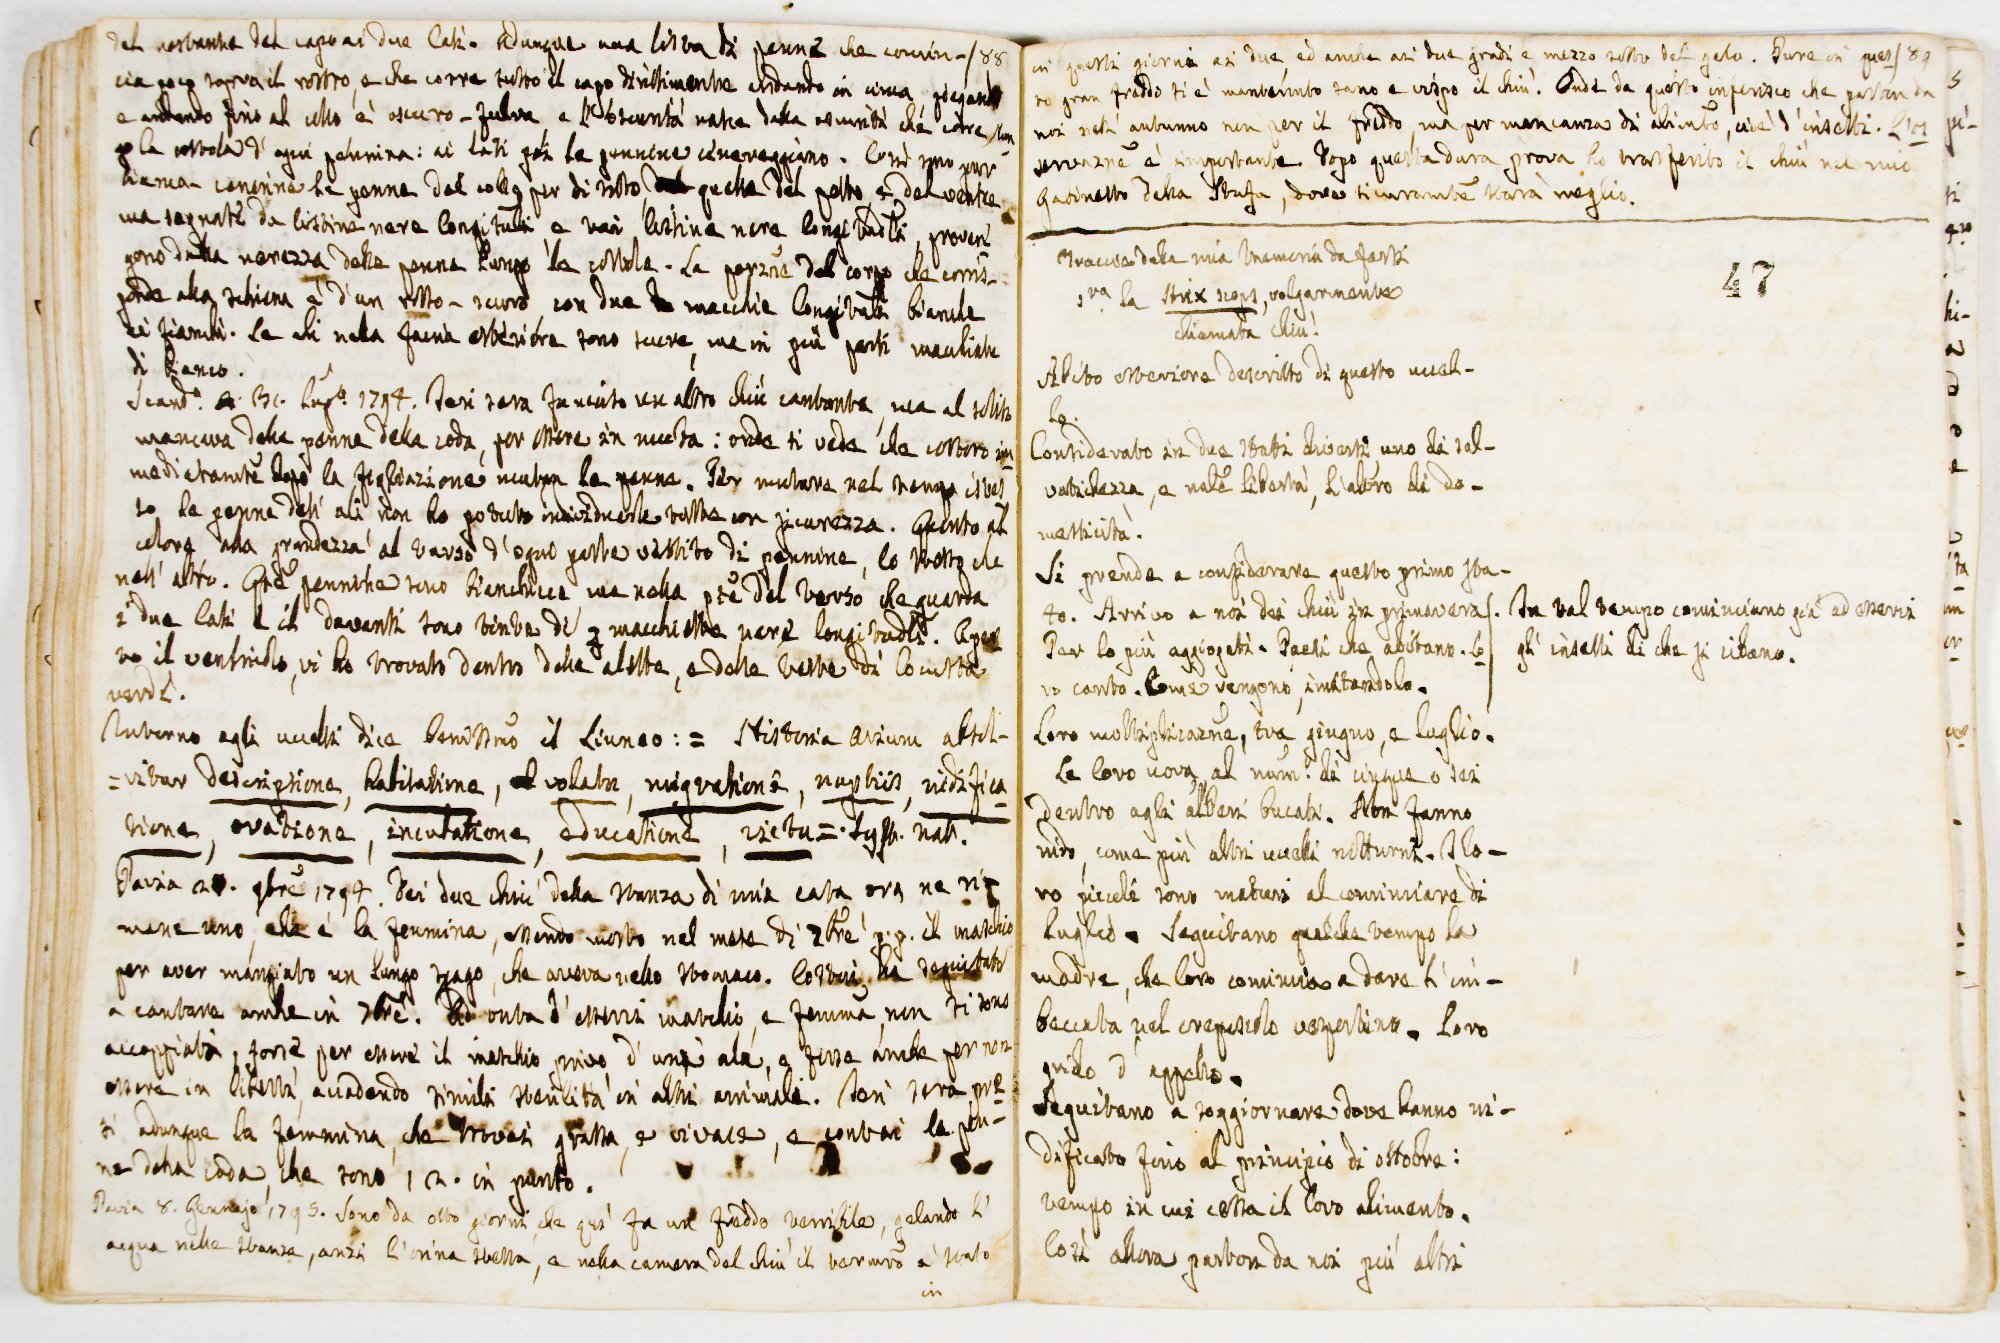 del restante del capo ai due lati. Adunque una lista di penne che comin-/88
cia poco sopra il rostro, e che corre tutto il capo direttamente andando in cima piegando
e andando fino al collo è oscuro-fulva e l'oscurità nasce dalla oscurità che corre lun
go la costola d'ogni pennina: ai lati poi le pennine cenereggiano. Così sono pur
bianco-cenerine le penne del collo per di sotto, quelle del petto e del ventre
ma segnate da listine nere longitudli, proven
gono dalla nerezza delle penne lungo le costole. La porzne del corpo che corris-
ponde alla schiena è d'un rosso-scuro, con due macchie longitudli bianche
ai fianchi. Le ali nella faccia esteriore sono scure, ma in più parti macchiate
di bianco.
Scand.o 31. Lug.o 1794. Ieri sera fu ucciso un altro chiù cantante, ma al solito
mancava delle penne della coda, per essere in muda: onde si vede che costoro im
mediatamte dopo la figliazione mutan le penne. Per mutare nel tempo istes
so le penne dell'ali non ho potuto individuarle tutte con sicurezza. Quanto al
colore alla grandezza al tarso d'ogni parte vestito di pennine, lo stesso che
nell'altro. Qte pennine sono bianchicce ma nella pte del tarso che guarda
i due lati e il davanti sono tinte di macchiette nere longitudli. Aper
to il ventricolo, vi ho trovato dentro delle alette, e delle teste di locusta
verde.
Intorno agli uccelli dice benissmo il Linneo: = Historia Avium absol-
=vitur descriptione, habitatione, volatu, migratione, nuptiis, nidifica
tione, ovatione, incubatione, educatione, victu =. Syst. nat.
Pavia 9bre 1794. Dei due chiù della stanza di mia casa ora ne ri-
mane uno, che è la femmina, essendo morto nel mese di 7bre p.p. il maschio
per aver mangiato un lungo spago, che aveva nello stomaco. Costui ha seguitato
a cantare anche in 7bre. Ad onta d'esservi maschio, e femma, non si sono
accoppiati, forse per essere il maschio privo d'una ala, e forse anche per non
essere in libertà, accadendo simili sterilità in altri animali. Ieri sera pre
si adunque la femmina, che trovasi grassa, e vivace, e contai le pen-
ne della coda che sono 12. in punto.
Pavia 8. Gennajo 1795. Sono da otto giorni, che qui fa un freddo terribile, gelando l'
acqua nelle stanze, anzi l'orina stessa, e nella camera del chiù il termro è stato
in
in questi giorni ai due ed anche ai due gradi e mezzo sotto del gelo. Pure in ques/89
to gran freddo si è mantenuto sano e vispo il chiù. Onde da questo inferisco che partan da
noi nell'autunno non per il freddo, ma per mancanza di alimto, cioè d'insetti. L'os
servazne è importante. Dopo questa dura prova ho trasferito il chiù nel mio
Gabinetto della Stufa, dove sicuramte starà meglio.
47
Traccia della mia memoria da farsi
s.va la Strix scops, volgarmente
chiamata chiù.
Abito esteriore descritto di questo uccel-
lo.
Considerato in due stati diversi uno di sel-
vatichezza, e nalle libertà, l'altro di do-
mesticità.
Si prende a considerare questo primo sta-
to. Arrivo a noi dei chiù in primavera/.
In tal tempo cominciano già ad esservi
gli insetti di che si cibano.
Per lo più aggiogati. Paesi che abitano. Lo
ro canto. Come vengono, imitandolo.
Loro moltiplicazne, tra giugno, e luglio.
Le loro uova al num.o di cinque o sei
dentro agli alberi bucati. Non fanno
nido, come più altri uccelli notturni. I lo-
ro piccoli sono maturi al cominciare di
luglio. Seguitano qualche tempo la
madre, che loro comincia a dare l'im-
beccata nel crepuscolo vespertino. Loro
grido d'appello.
Seguitano a soggiornare dove hanno ni-
dificato fino al principio di ottobre:
tempo in cui cessa il loro alimento.
Così allora parton da noi più altri